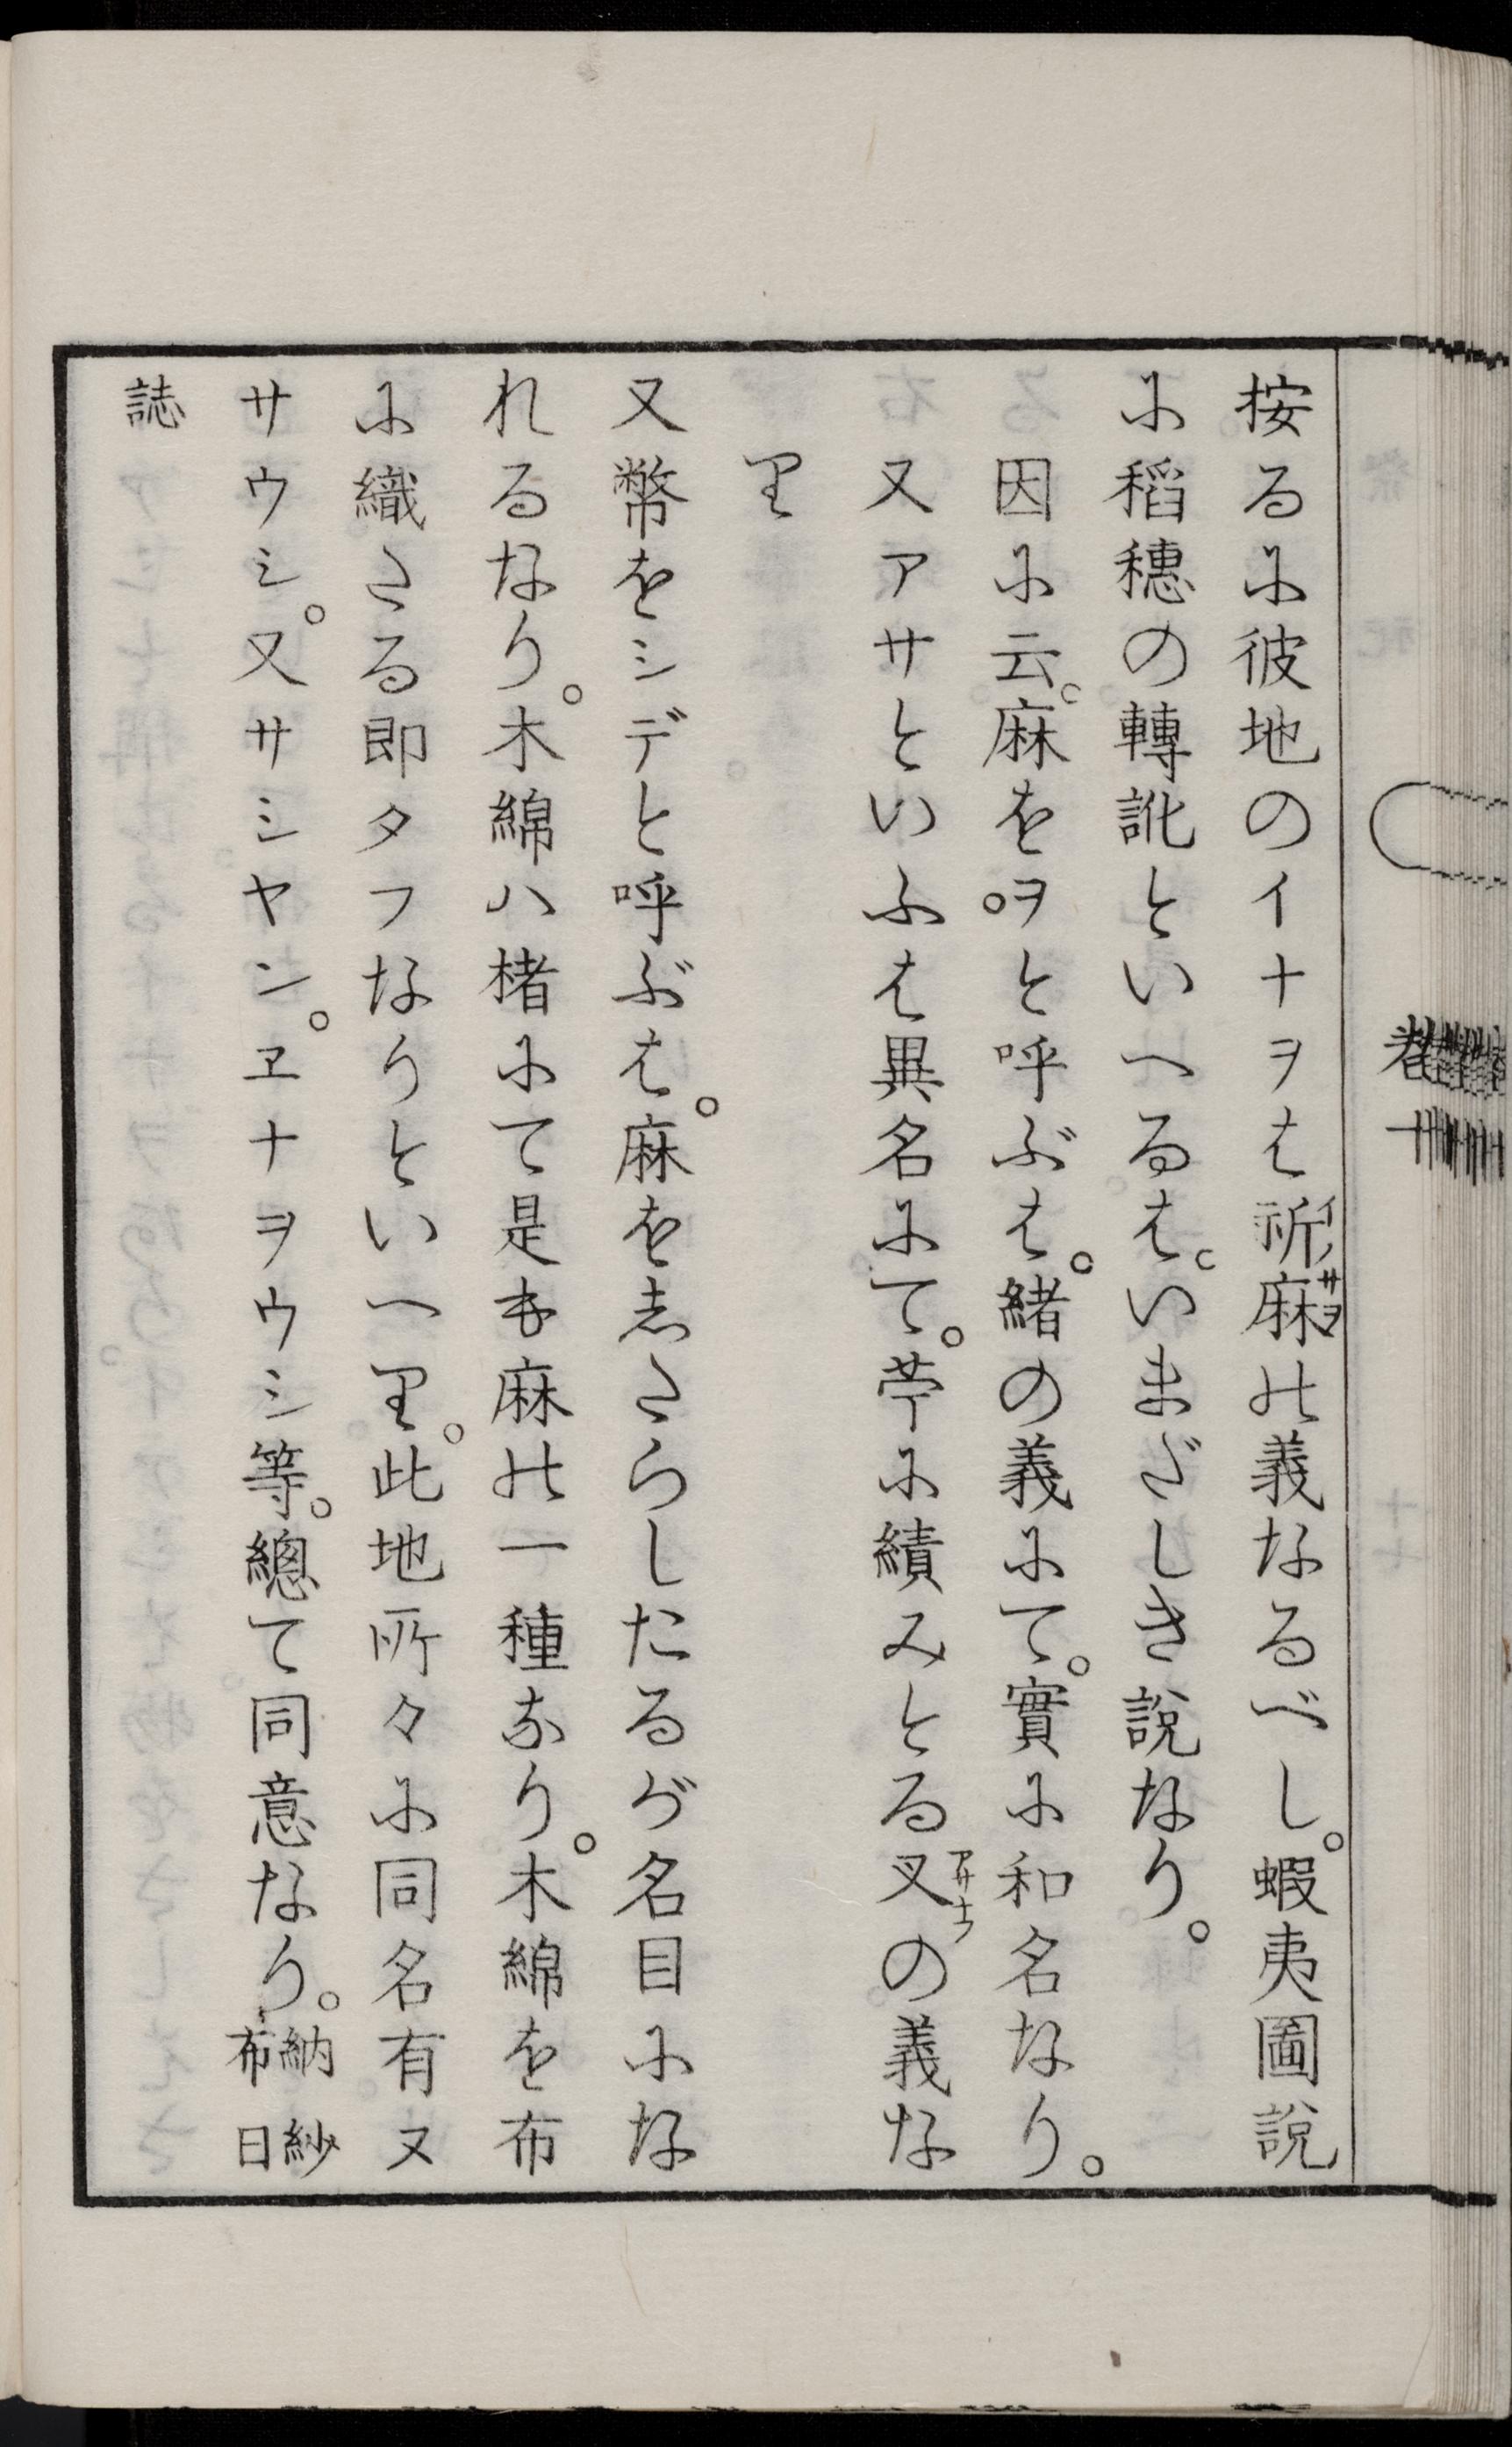 按るに彼地のイナヲは祈麻の義なるべし。蝦夷圖説
に稲穗の轉訛といへるは。いまだしき説なり。
因に云。麻をヲと呼ぶは。緒の義にて。實に和名なり。
又アサといふは異名にて。苧に績みとる叉の義な
り
又幣をシデと呼ぶは。麻をあさらしたるが名目にな
れるなり。木綿ハ楮にて是も麻の一種なり。木綿を布
に織たる即タフなりといへり。此地所々に同名有ヌ
サウシ。又サシヤン。ヱナヲウシ等。總て同意なり。納紗布日
誌
卷十